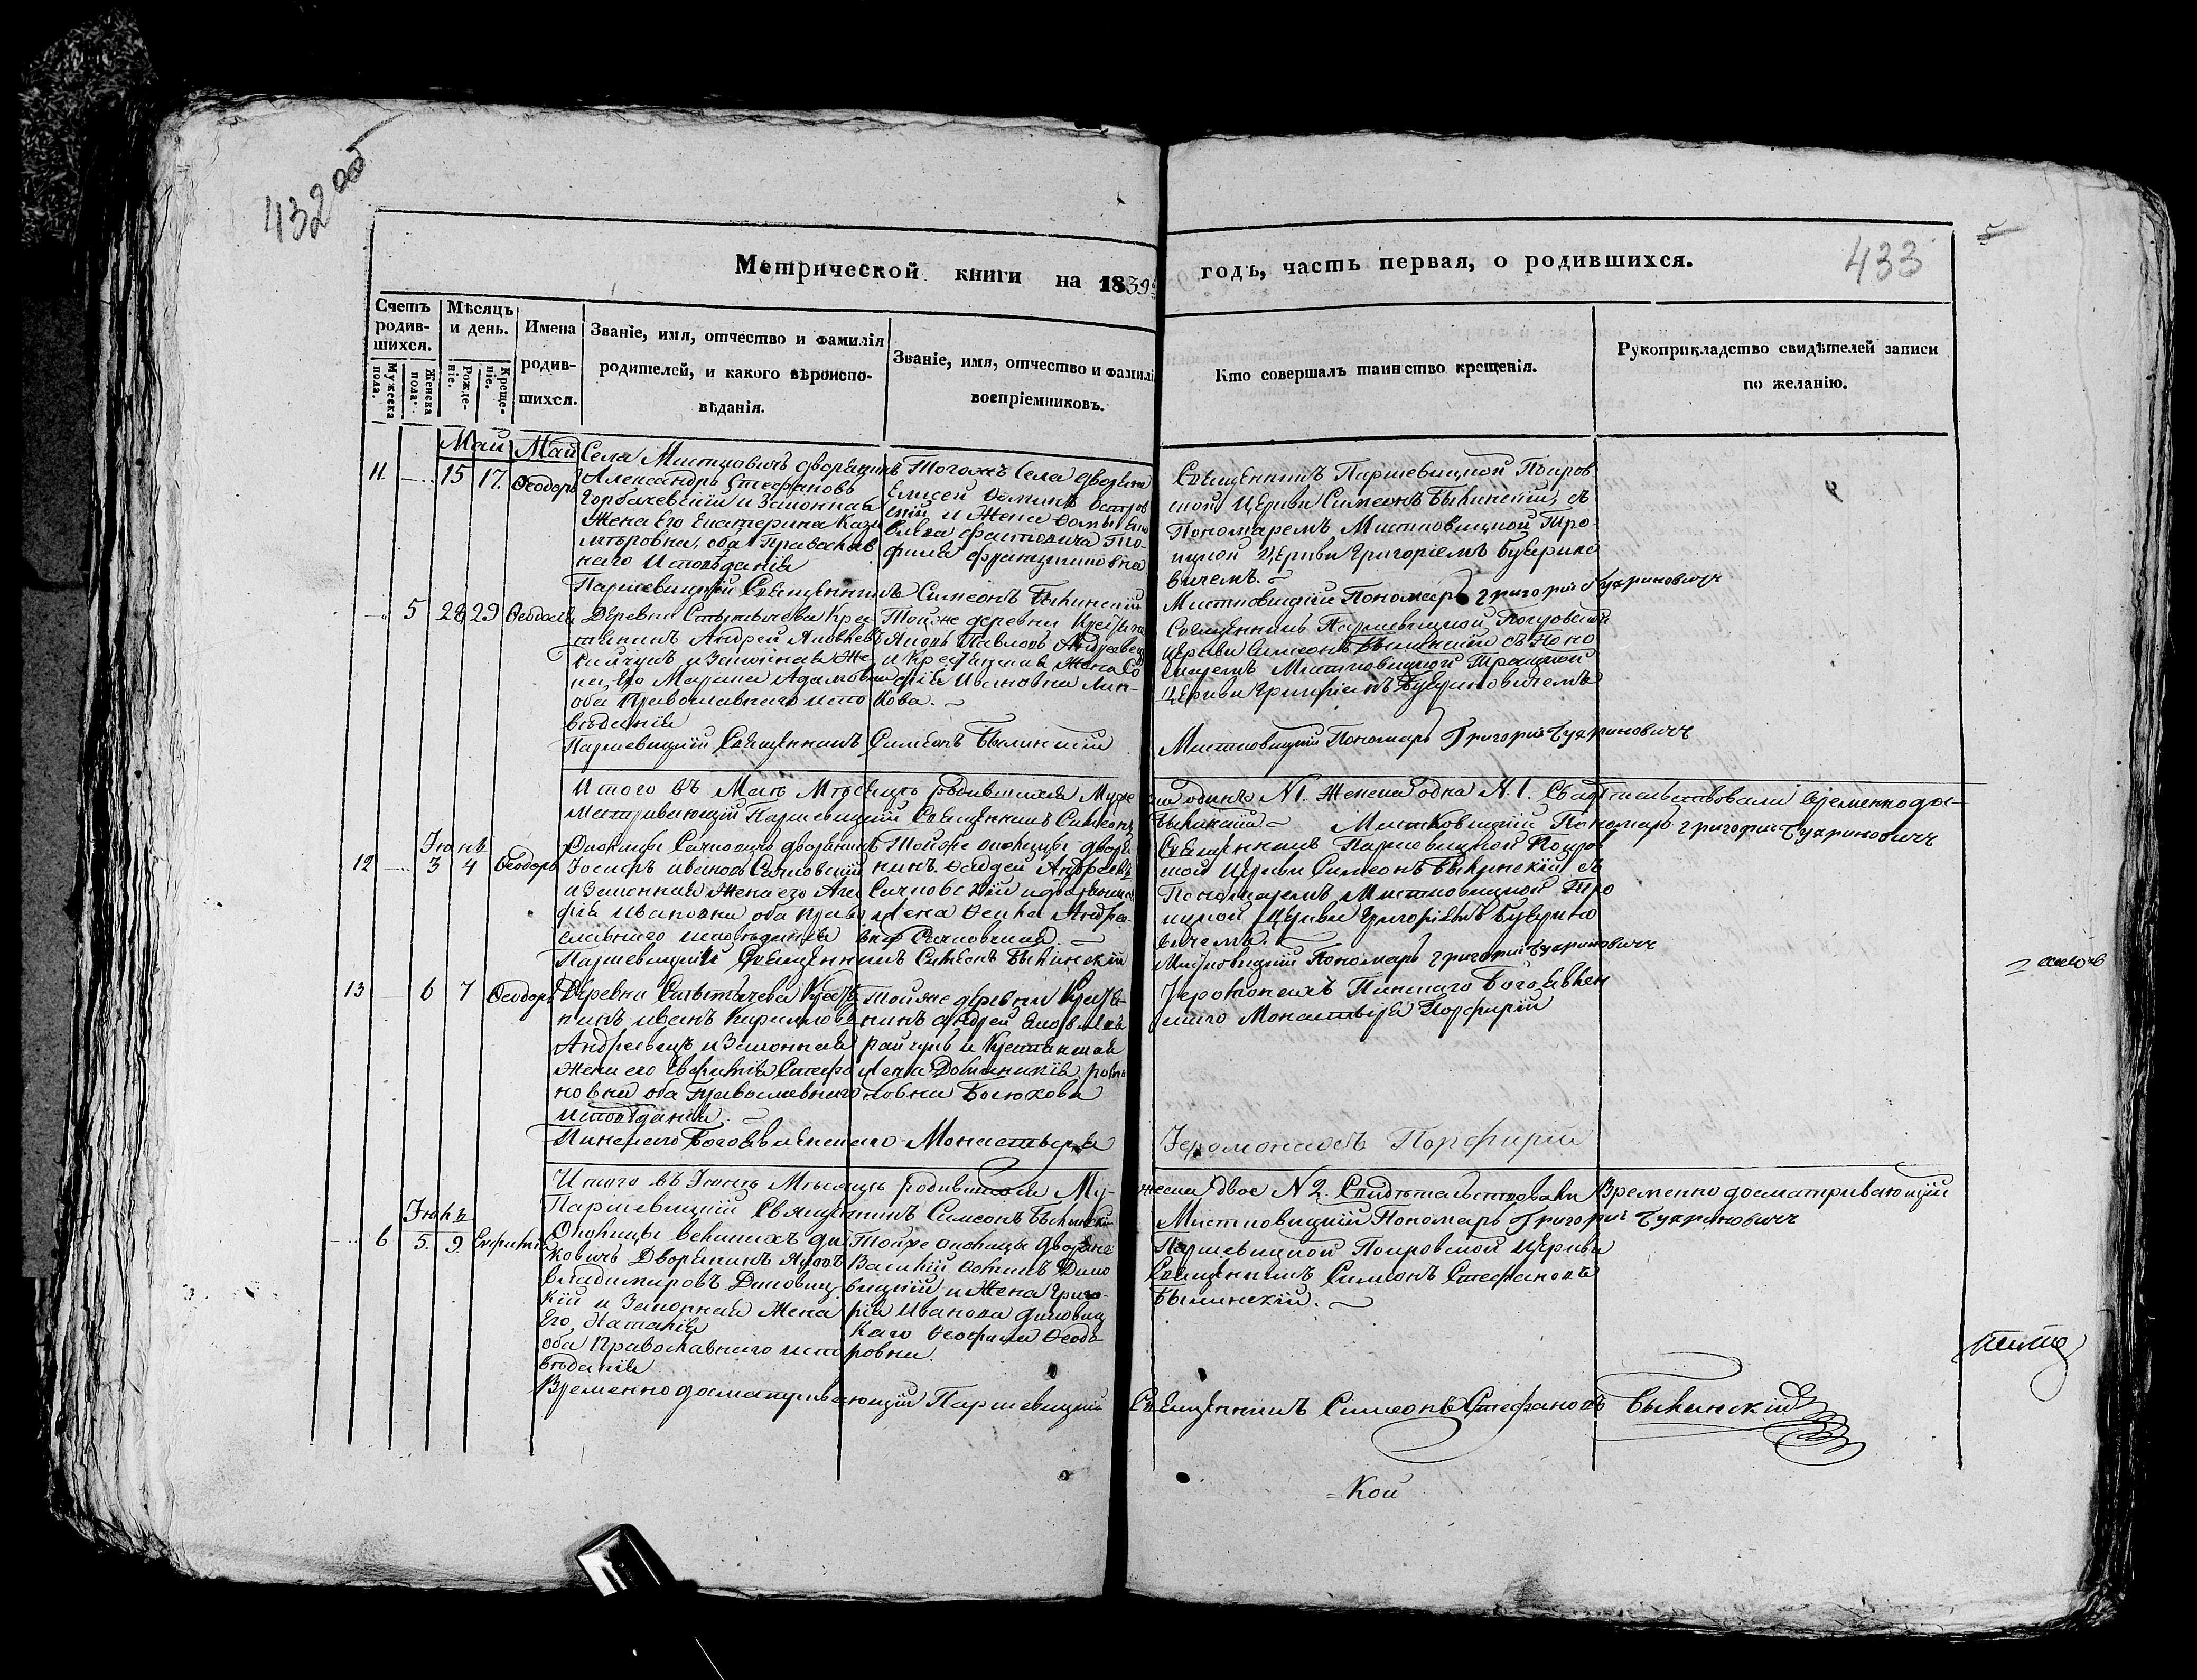 432 об
433
5
Метрической книги на 1839й годъ, часть первая, о родившихся.
Счетъ родив-шихся.
Мужеска пола.
Женска пола.
Мѣсяцъ и день.
Рожде-ніе.
Креще-ніе.
Имена родив-шихся.
Званіе, имя, отчество и фамилія
родителей, и какого вѣроиспо-
вѣданія.
Званіе, имя, отчество и фамилі
воспріемниковъ.
Кто совершалъ таинство крещенія.
Рукоприкладство свидѣтелей записи
по желанію.
Май Май
11. 15 17. Ѳеодоръ
Села Мистковичъ дворянинъ
Александръ Стефановъ
Горбачевскій и Законная
Жена Его Екатерина Кази
мѣровна, оба Православ
наго Исповѣданія
Тогожъ Села дворянин
Елисей Ѳоминъ Остров
скій и Жена Ѳомы
Священникъ Паршевицкой Покров
ской Церкви Симеонъ Былинскій, съ
Пономаремъ Мистковицкой Тро
ицкой Церкви Григоріемъ Букрино
вичемъ.
Паршевицкій Священникъ Симеонъ Былинскій
Мистковицкій Пономарь Григорій Букриновичъ
5 28 29
Деревни Кре
стьянинъ Андрей Яковлевъ
Райчукъ и Законная Же
на Его Марина Адамовна
оба Православнаго испо
вѣданія
Тойже деревни Крестьяни
Яковъ Павловъ Андреевец
и Крестьянина Жена Со
фія Ивановна Лин-
кова.
Священникъ Паршевицкой Покровской
Церкви Симеонъ Былинскій съ Поно
маремъ Мистковицкой Троицкой
Церкви Григоріемъ Букриновичемъ
Паршевицкій Священникъ Симеонъ Былинскій
Мистковицкій Пономарь Григорій Букриновичъ
Итого въ Маѣ Мѣсяцѣ родившихся Муже
ска одинъ N 1. Женска одна N. 1. Свидѣтельствовали временно до-
сматривающій Паршевицкій Священникъ Симеонъ
Былинскій Мистковицкій Пономарь Григорій Букриновичъ
Іюнь
12 3 4 Ѳеодоръ
Околицы Сачковичъ дворянинъ
Іосифъ Ивановъ Сачковскій
и Законная Жена его Ага
фія Ивановна оба Право
славнаго исповѣданія
Тойже околицы дворя
нинъ Ѳаддей Андреевъ
Сачковскій и дворянина
Жена Ѳекла Андре
евна Сачковская.
Священникъ Паршевицкой Покров
ской Церкви Симеонъ Былинскій съ
Пономаремъ Мистковицкой Тро
ицкой Церкви Григоріемъ Букрино
вичемъ.
Паршевицкій Священникъ Симеонъ Былинскій
Мистковицкій Пономарь Григорій Букриновичъ
13 6 7 Ѳеодоръ
Деревни Крестья
нинъ Иванъ Кирилловъ
Андреевецъ и Законная
Жена его Евфимія Стефа
новна оба Православнаго
исповѣданія.
Тойже деревни Крестья-
нинъ Андрей Яковлевъ
Райчукъ и Крестьянская
Жена Доминикія
Іеромонахъ Пинскаго Богоявлен
скаго Монастыря Порфирій
Пинскаго Богоявленскаго Монастыря
Іеромонахъ Порфирій
Итого въ Іюнѣ Мѣсяцѣ родившихся Му-
жеска двое N 2. Свидѣтельствовали Временно досматривающій
Паршевицкій Священникъ Симеонъ Былинскій
Мистковицкій Пономарь Григорій Букриновичъ
6 5. 9. Евфимія
Околицы великихъ ди
ковичъ Дворянинъ Яковъ
Владимировъ Диковиц
кій и Законная Жена
Его Наталія
оба Православнаго испо
вѣданія
Тойже околицы дворяне
Василій Ѳоминъ Дико
вицкій и Жена Григо-
рія Иванова диковиц
каго Ѳеофила Ѳеодо-
ровна.
Паршевицкой Покровской Церкви
Священникъ Симеонъ Стефановъ
Былинскій.
Временно досматривающій Паршевицкій
Священникъ Симеонъ Стефановъ Былинскій
Кой